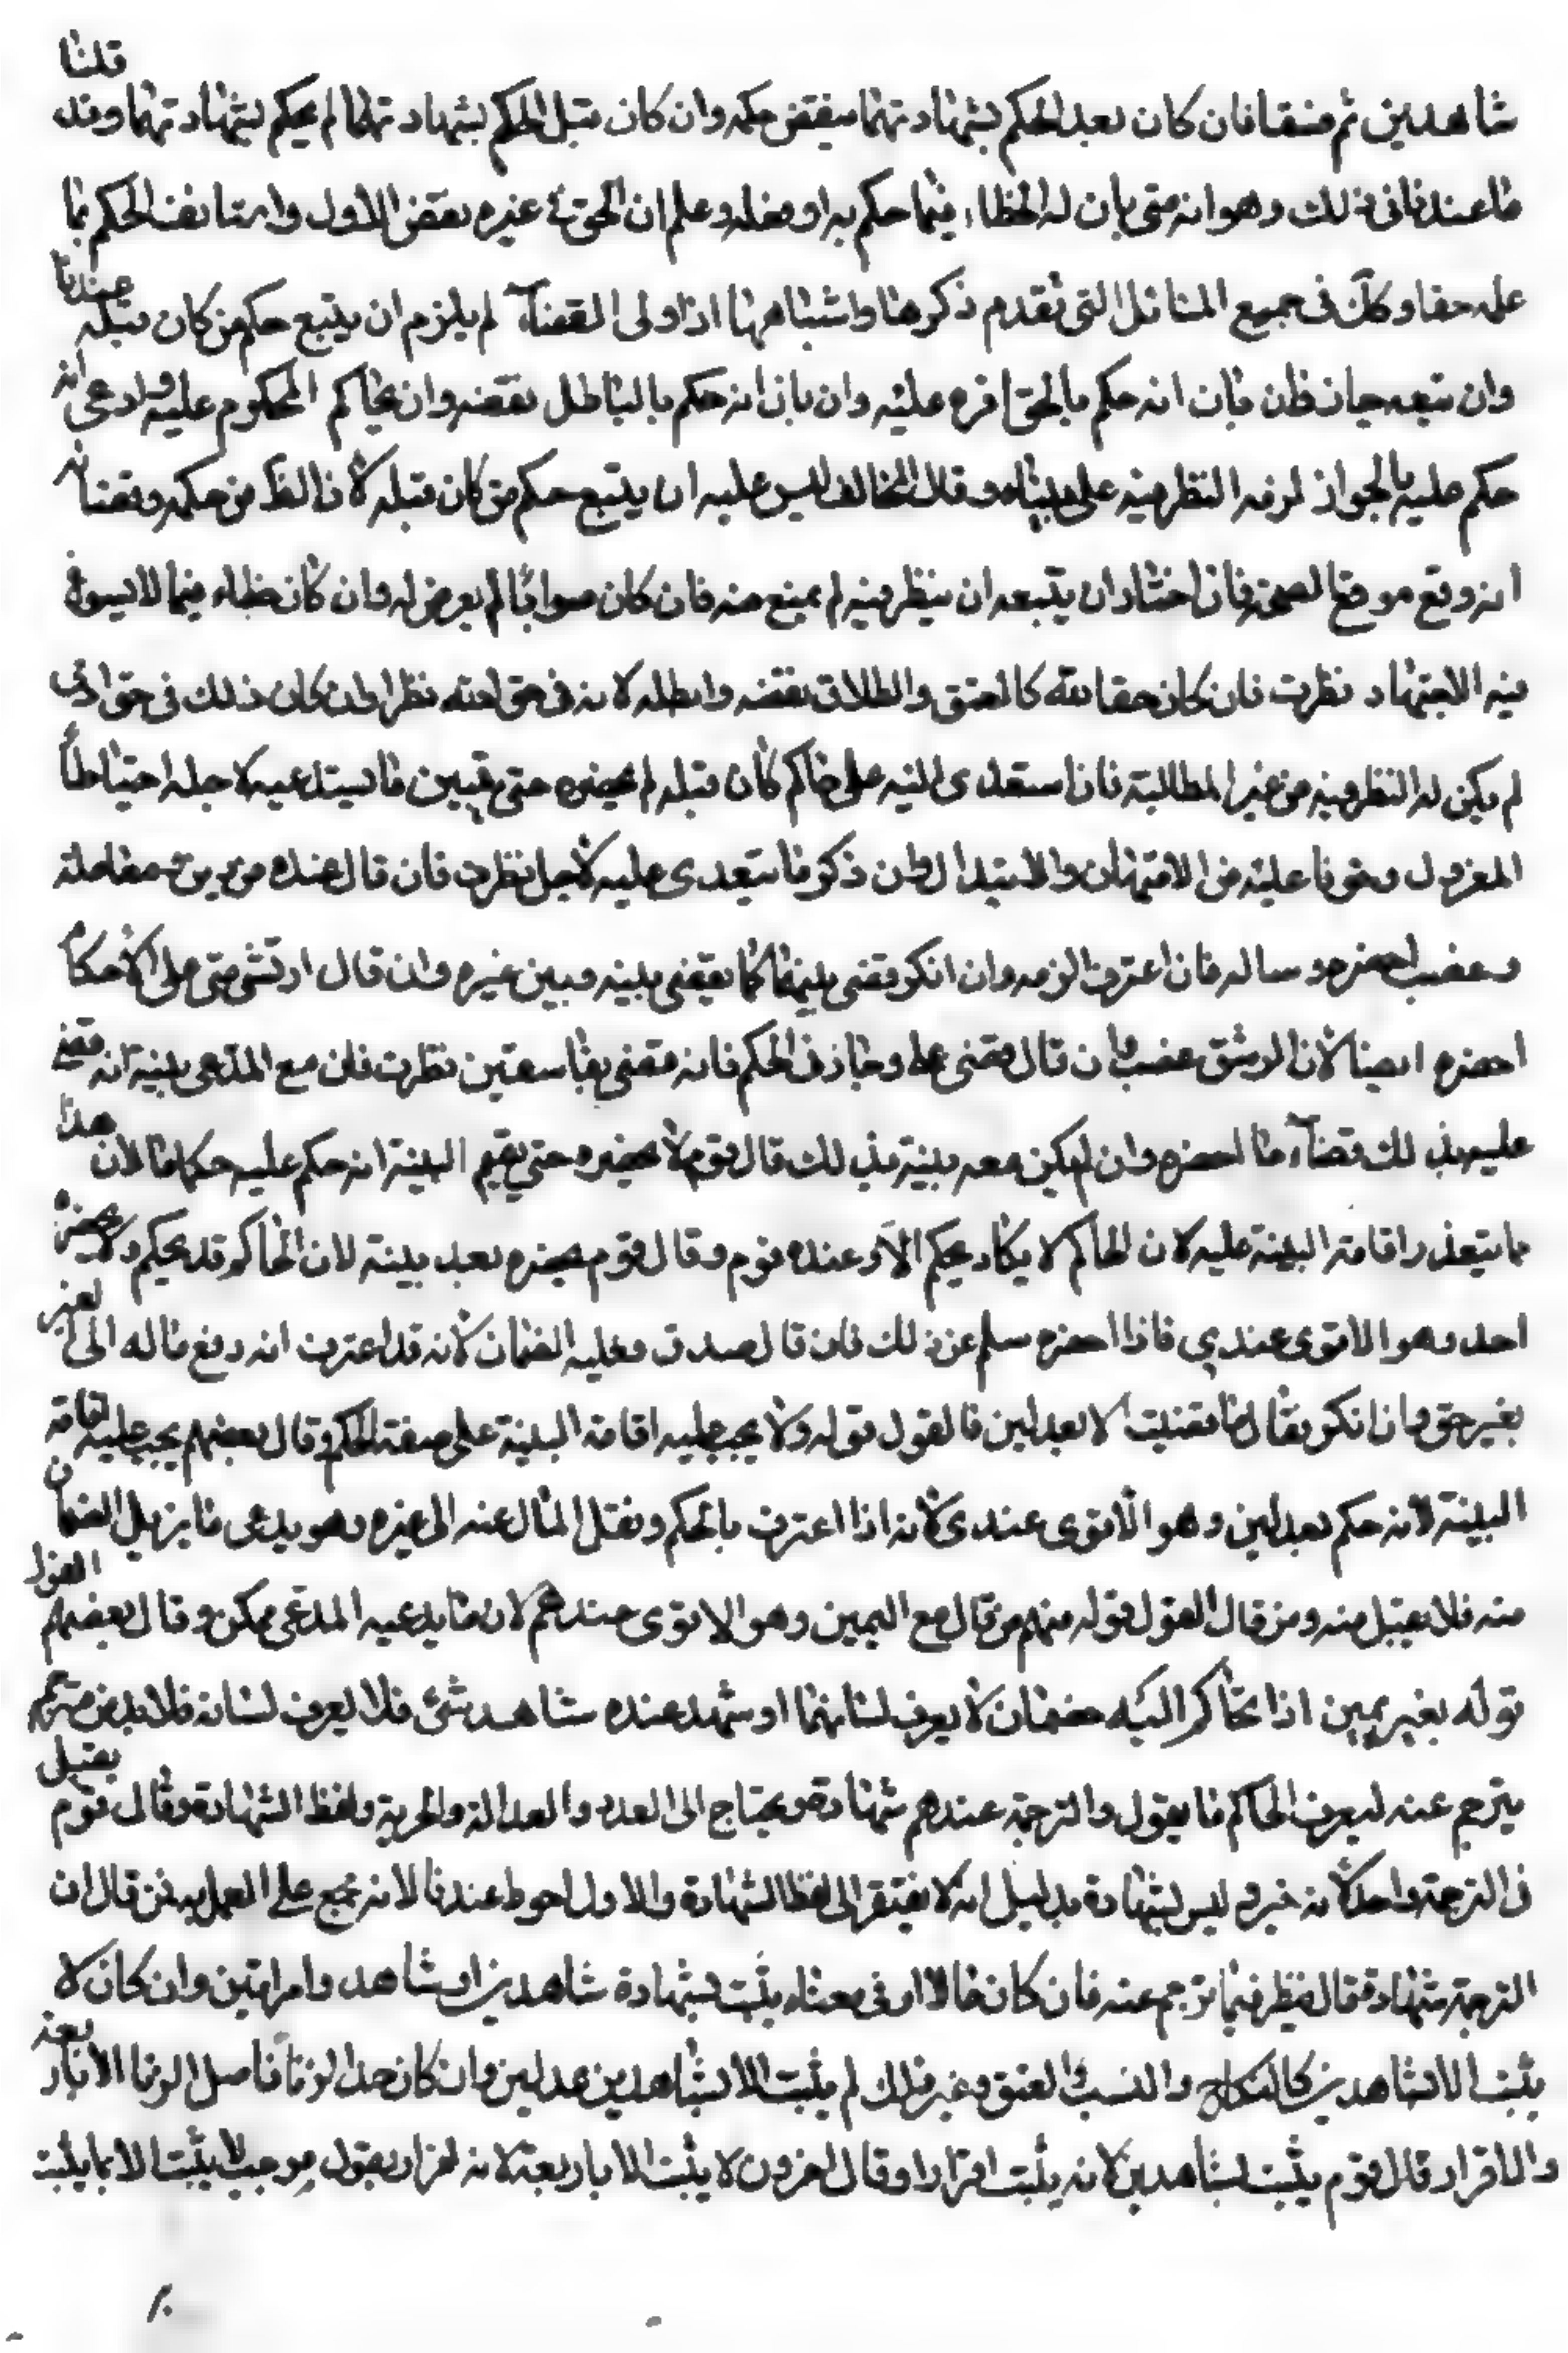 شاهدين ثم فسقا فان كان بعد الحكم بشهادتهما ينقض حكمه وان كان قبل الحكم بشهادتهما لم يحكم بشهادتهما وقد قلنا
ما عندنا في ذلك وهو انه متى بان له الخطاء فيما حكم به او فعله وعلم ان الحق في غيره نقض الاول واستانف الحكم بما
علمه حقا وكك في جميع المسائل التي تقدم ذكرها واشباهها اذا ولى القضآء لم يلزم ان يتبع حكم من كان قبله عندنا
وان تتبعه جاز فان بان انه حكم بالحق اقره عليه وان بان انه حكم بالباطل نقضه وان تحاكم المحكوم عليه وادعى انه
حكم عليه بالجواز لزمه النظر فيه على ما بيناه وقال المخالف ليس عليه ان يتبع حكم من كان قبله لان الظ من حكمه وقضائه
انه وقع موقع الصحة فان اختار ان يتبعه ان ينظر فيه لم يمنع منه فان كان صوابا لم يعرض له وان كان خطاء فيما لا يسوغ
فيه الاجتهاد نظرت فان كان حقا لله كالعتق والطلاق نقضه وابطله لانه في حق الله نظرا وان كان ذلك في حق ادمي
لم يكن له النظر فيه من غير المطالبة فان استعدى اليه على حاكم كان قبله لم يحضره حتى يتبين ما يستدعيه لاجله احتياطا
للمعزول وخوفا عليه من الامتهان والابتذال وان ذكر ما يتعدى عليه لاجل نظرت فان قال عنده من دين معاملة
وغصب احضره وساله فان اعترف الزمه وان انكر وقضى بينهما كما يقضى بينه وبين غيره وان قال ارتشى مني على الاحكام
احضره ايضا لان الرشق غصب وان قال قضى على وجار في الحكم فانه قضى بفاسقين نظرت فان مع المدعى بينة انه قضى
عليه بذلك قضآء ما احضره وان لم يكن معه بينة بذلك قال قوم لا يحضره حتى يقيم البينة انه حكم عليه حكما ما لان هذا
ما يتعذر اقامة البينة عليه لان الحاكم لا يكاد يحكم الا وعنده قوم وقال قوم يحضره بعد بينة لان الحاكم قد يحكم ولا يحضره
احد وهو الاقوى عندي فاذا احضره سئله عن ذلك فان قال صدق فعليه الضمان لانه قد اعترف انه دفع ماله الى الغير
بغير حق وان انكر فقال ما قضيت الا بعدلين فالقول قوله ولا يجب عليه اقامة البينة على صفة الحكم وقال بعضهم يجب عليه اقامة
البينة لانه حكم بعدلين وهو الاقوى عندي لانه اذا اعترف بالحكم ونقل المال عنه الى غيره وهو يدعى ما يزيل الضمان
منه فلا يقبل منه ومن قال القول قوله منهم من قال مع اليمين وهو الاقوى عندهم لان ما يدعيه المدعى ممكن وقال بعضهم القول
قوله بغير يمين اذا تحاكم اليه خصمان لا يعرف لسانهما او شهد عنده شاهد شئ فلا يعرف لسانه فلا بد من مترجم
يترجم عنه ليعرف الحاكم ما يقول والترجمة عندهم شهادة ويحتاج الى العدد والعدالة والحرية ولفظ الشهادة وقال قوم يقبل
في الترجمة واحد لانه خبر وليس بشهادة بدليل انه لا يفتقر الى لفظ الشهادة والاول احوط عندنا لانه مجمع على العمل به فمن قال ان
الترجمة شهادة قال ينظر فيما ترجم عنه فان كان مالا او في معناه يثبت بشهادة شاهدين او شاهد وامراتين وان كان لا
يثبت الا بشاهدين كالنكاح والنسب والعتق وغير ذلك لم يثبت الا بشاهدين عدلين وان كان حد الزنا فاصل الزنا الا باربعة
والاقرار قال قوم يثبت بشاهدين لانه يثبت اقرارا وقال اخرون لا يثبت الا باربعة لانه اقرار بقول موجبه لا يثبت الا بما يثبت